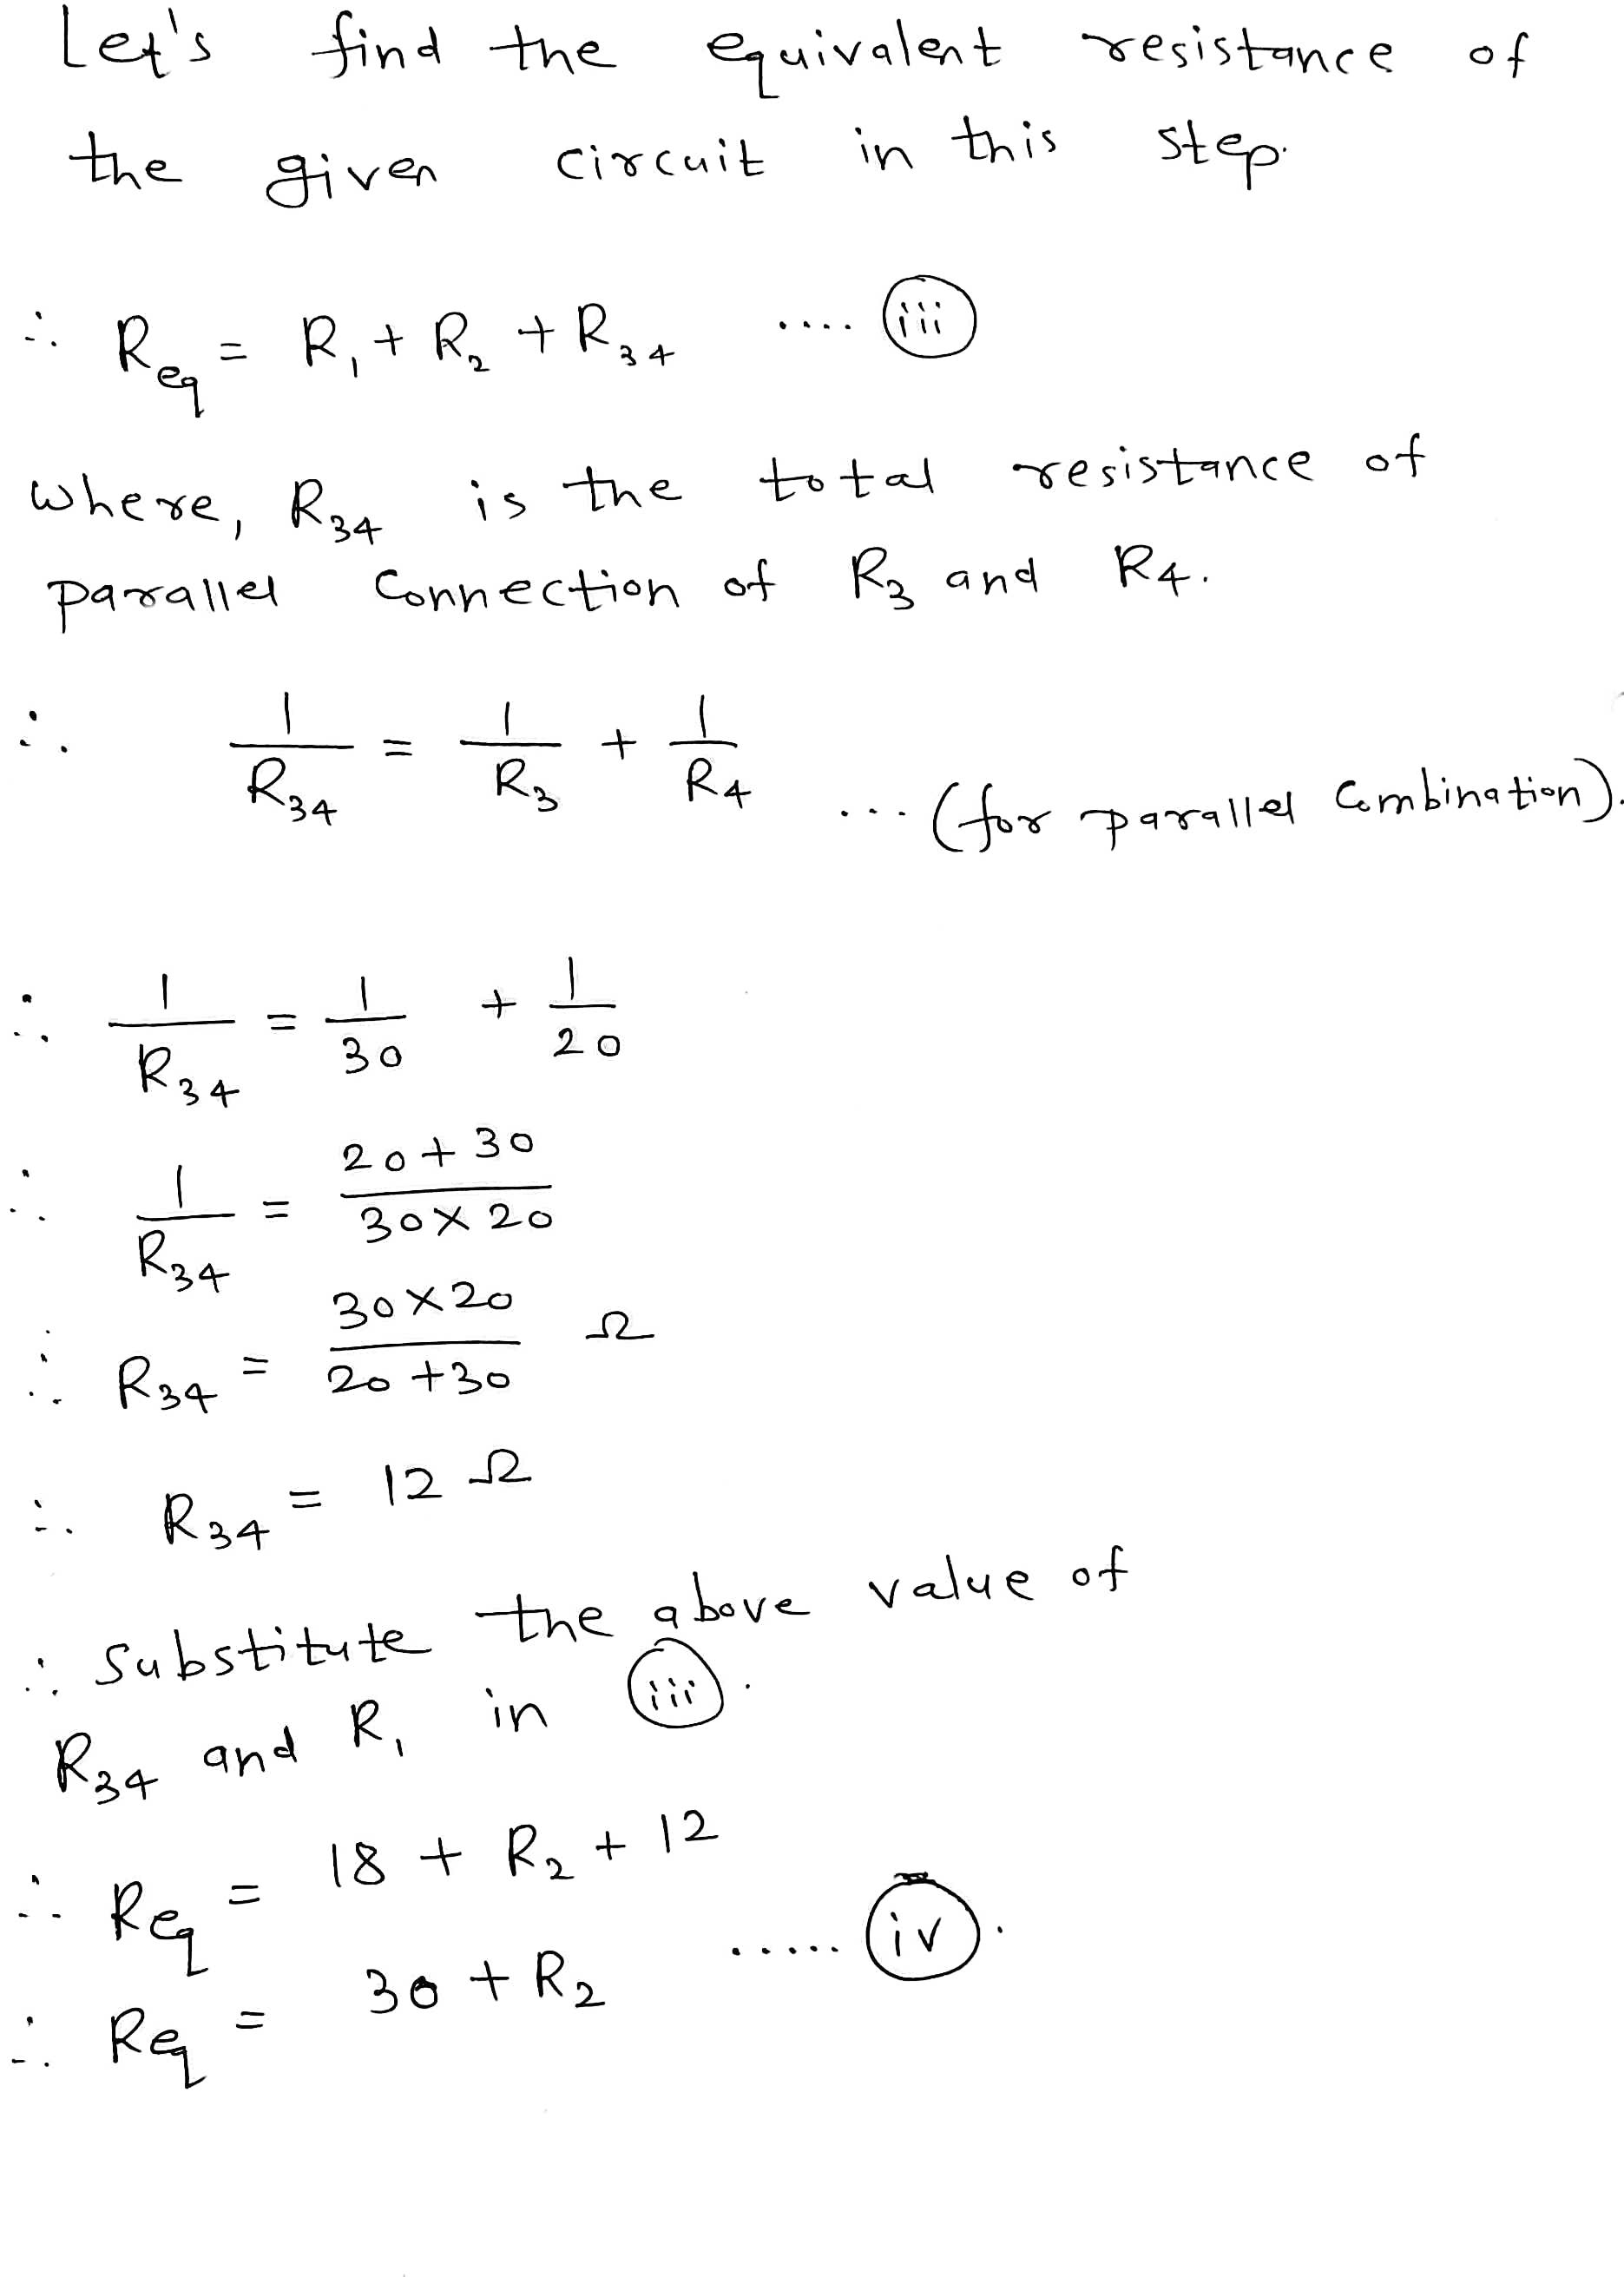 Let's find the equivalent resistance of
the given circuit in this step.
∴ Req = R₁ + R₂ + R₃₄ .... (iii)
where, R₃₄ is the total resistance of
parallel connection of R₃ and R₄.
∴ 1/R₃₄ = 1/R₃ + 1/R₄ ... (for parallel combination).
∴ 1/R₃₄ = 1/30 + 1/20
∴ 1/R₃₄ = (20+30)/(30×20)
∴ R₃₄ = (30×20)/(20+30) Ω
∴ R₃₄ = 12 Ω
∴ substitute the above value of
R₃₄ and R₁ in (iii).
∴ Req = 18 + R₂ + 12
∴ Req = 30 + R₂ ..... (iv).